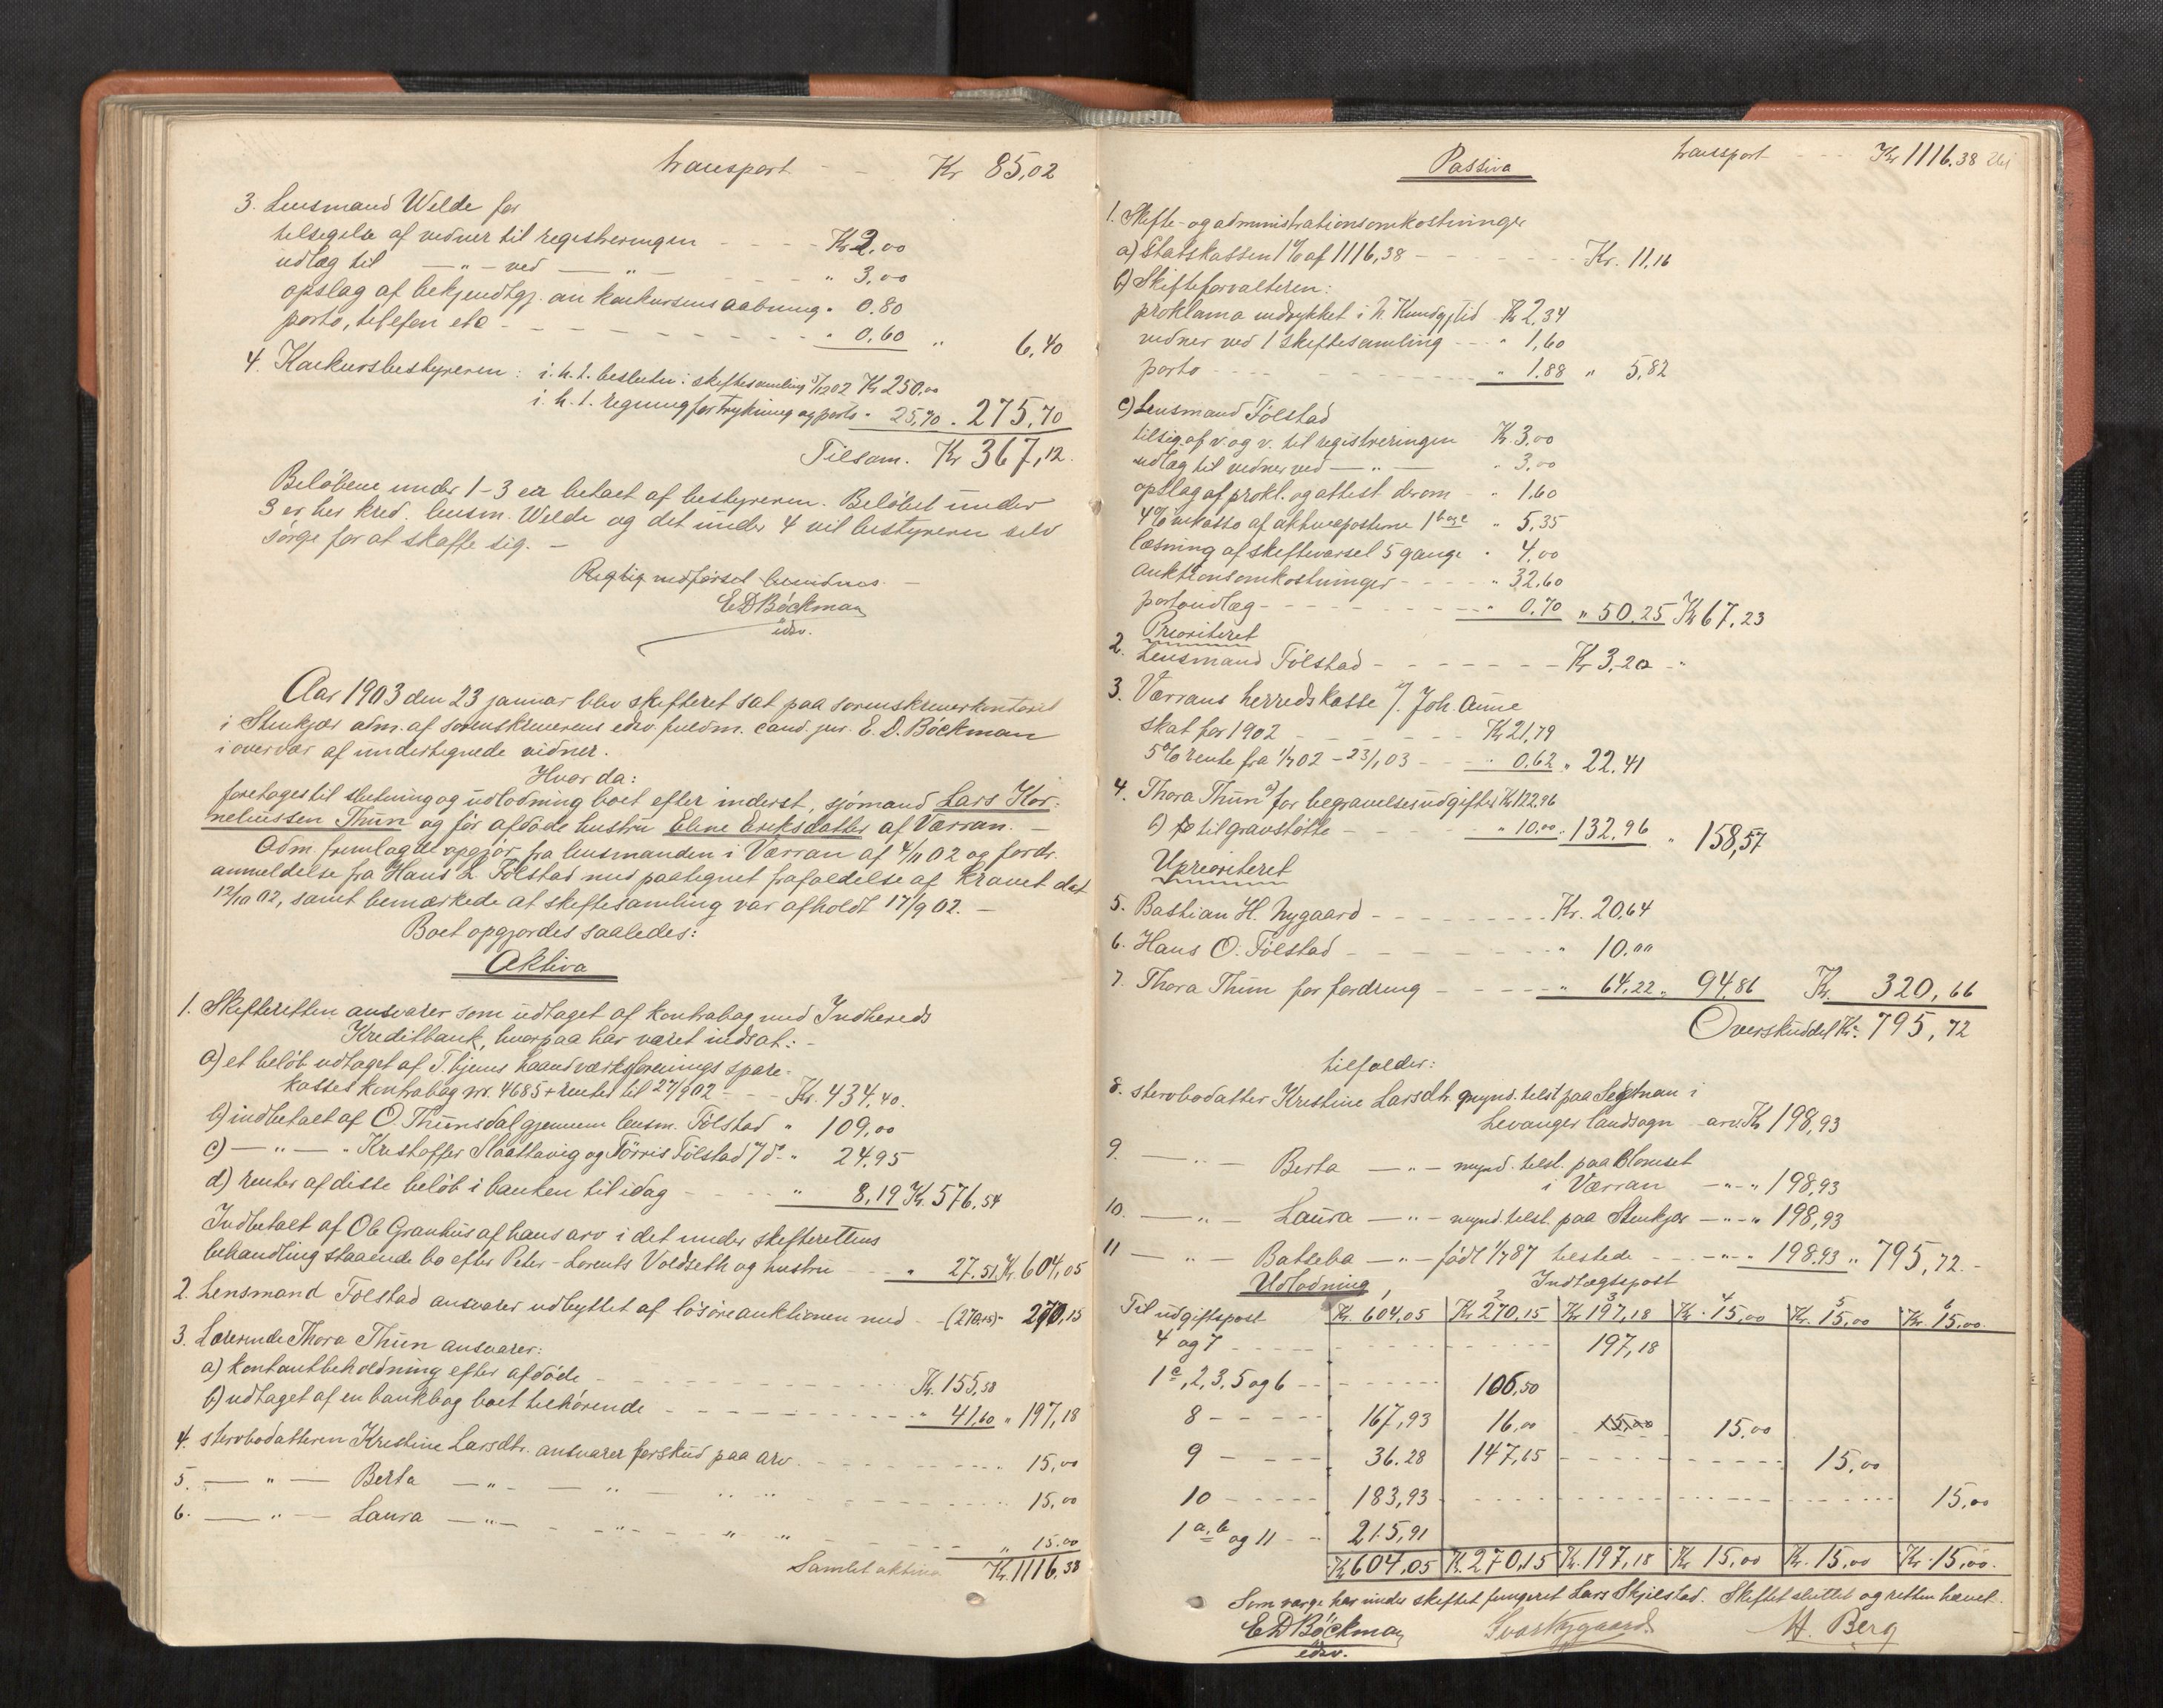 transport - - Kr 85,02
3. Lensmand Welde for
tilsigelse af vidner til registreringen - - - - Kr 2,00
udlæg til —"— ved —"— - - " 3,00
opslag af bekjendtgj. om konkursens aabning " 0.80
porto, telefon etc - - - - - - - " 0,60 " 6,40
4. Konkursbestyreren: i.h.t. beslutn. i skiftesamling 5/12 02 Kr 250,00
i.h.t. regning for trykning og porto " 25,70 " 275,70
Tilsam. Kr 367,12.
Beløbene under 1-3 er betalt af bestyreren. Beløbet under
3 er her kred. lensm. Welde og det under 4 vil bestyreren selv
sørge for at skaffe sig. —
Rigtig udførsel bevidnes. —
E D Bøckman
edsv.
Aar 1903 den 23 januar blev skifteret sat paa sorenskriverkontoret
i Stenkjær adm. af sorenskriverens edsv. fuldm. cand. jur. E. D. Bøckman
i overvær af undertegnede vidner.
Hvor da:
foretoges til slutning og udlodning boet efter inderst, sjømand Lars Kor-
neliussen Thun og før afdøde hustru Eline Eriksdatter af Værran. —
Adm. fremlagde opgjør fra lensmanden i Værran af 4/11 02 og fordr.
anmeldelse fra Hans L. Følstad med paategnet frafaldelse af kravet dat
12/10 02, samt bemærkede at skiftesamling var afholdt 17/9 02. —
Boet opgjordes saaledes:
Aktiva
1. Skifteretten ansvarer som udtaget af kontrabog med Indhereds
Kreditbank, hvorpaa har været indsat: -
a) et beløb udtaget af T.hjems haandværksforenings spare-
kasses kontrabog nr. 4685 + renter til 27/9 02 - - - Kr. 434,40.
b) indbetalt af O. Thunsdal gjennem lensm. Følstad " 109,00
c) —"— " Kristoffer Slaattavig og Tørris Følstad v/ do " 24,95
d) renter af disse beløb i banken til idag - - - " 8,19 Kr. 576,54
Indbetalt af Ole Granhus af hans arv i det under skifterettens
behandling staaende bo efter Peter-Lorents Voldseth og hustru - - " 27.51 Kr. 604,05
2. Lensmand Følstad ansvarer udbyttet af løsøreauktionen med - (270,15) - 270,15
3. Lærerinde Thora Thun ansvarer:
a) kontantbeholdning efter afdøde - - - - - Kr. 155,58
b) udtaget af en bankbog boet tilhørende - - - - " 41,60 " 197,18
4. stervbodatteren Kristine Larsdtr. ansvarer forskud paa arv - - - - " 15,00
5. —"— Berta —"— " " " - - - - " 15,00
6. —"— Laura —"— " " " - - - - " 15.00
Samlet aktiva Kr. 1116,38
Passiva
transport - - - Kr 1116.38 261
1. Skifte- og administrationsomkostninger
a) Statskassen 1% af 1116,38 - - - - - - Kr. 11,16
b) Skifteforvalteren:
proklama indrykket i N. Kundgj.tid Kr 2,34
vidner ved 1 skiftesamling - - - " 1,60
porto - - - - - - " 1.88 " 5,82
c) Lensmand Følstad
tilsig. af v. og v. til registreringen Kr. 3,00
udlæg til vidner ved —"— " 3,00
opslag af prokl. og attest derom - " 1,60
4% inkasso af aktivaposterne 1 b og c " 5,35
læsning af skiftevarsel 5 gange " 4,00
Auktionsomkostninger - - - - " 32,60
portoudlæg - - - - - - " 0.70 " 50,25 Kr 67,23
Prioriteret
2. Lensmand Følstad - - - - - - Kr 3,20 - "
3. Værrans herredskasse v/ Joh. Aune
skat for 1902 - - - - - - Kr 21,79
5% rente fra 1/7 02 - 23/1 03 - - - " 0,62 " 22,41
4. Thora Thun a) for begravelsesudgifter Kr 122,96
b) til gravstøtte - - - - " 10,00 " 132,96 " 158,57
Uprioriteret
5. Bastian H. Nygaard - - - - - - Kr. 20,64
6. Hans O. Følstad - - - - - " 10,00
7. Thora Thun for fordring - - - - - " 64,22 " 94,86 Kr. 320,66
Overskuddet Kr. 795,72
tilfalder:
8. stervbodatter Kristine Larsdtr. mynd. tilst. paa Segtnan i
Levanger landsogn - arv. Kr 198,93
9. —"— Berta —"— mynd. tilst. paa Blomset
i Værran —"—" 198,93
10. —"— Laura —"— mynd. tilst. paa Stenkjær —"—" 198,93
11 —"— Batseba —"— født 1/7 87 tilstede - - —"— " 198.93 " 795,72.-
Udlodning Indtægtspost
1 2 3 4 5 6
Til udgiftspost Kr. 604,05 Kr. 270,15 Kr. 197,18 Kr. 15,00 Kr. 15,00 Kr. 15,00
4 og 7 - - - - - - 197,18
1 c, 2, 3, 5 og 6 - - - - - 106,50
8 - - - - - 167,93 16,00 15,00 15,00
9 - - - - 36.28 147,65 - - - - - 15,00
10 - - - - - 183,93 - - - - - 15,00
1 a, b og 11 - - 215,91
Kr 604,05 Kr. 270,15 Kr. 197,18 Kr 15,00 Kr. 15,00 Kr. 15,00.
Som værge har under skiftet fungeret Lars Skjelstad. Skiftet sluttet og retten hævet.
E D Bøckman Ivar Nygaard M. Berg
edsv.